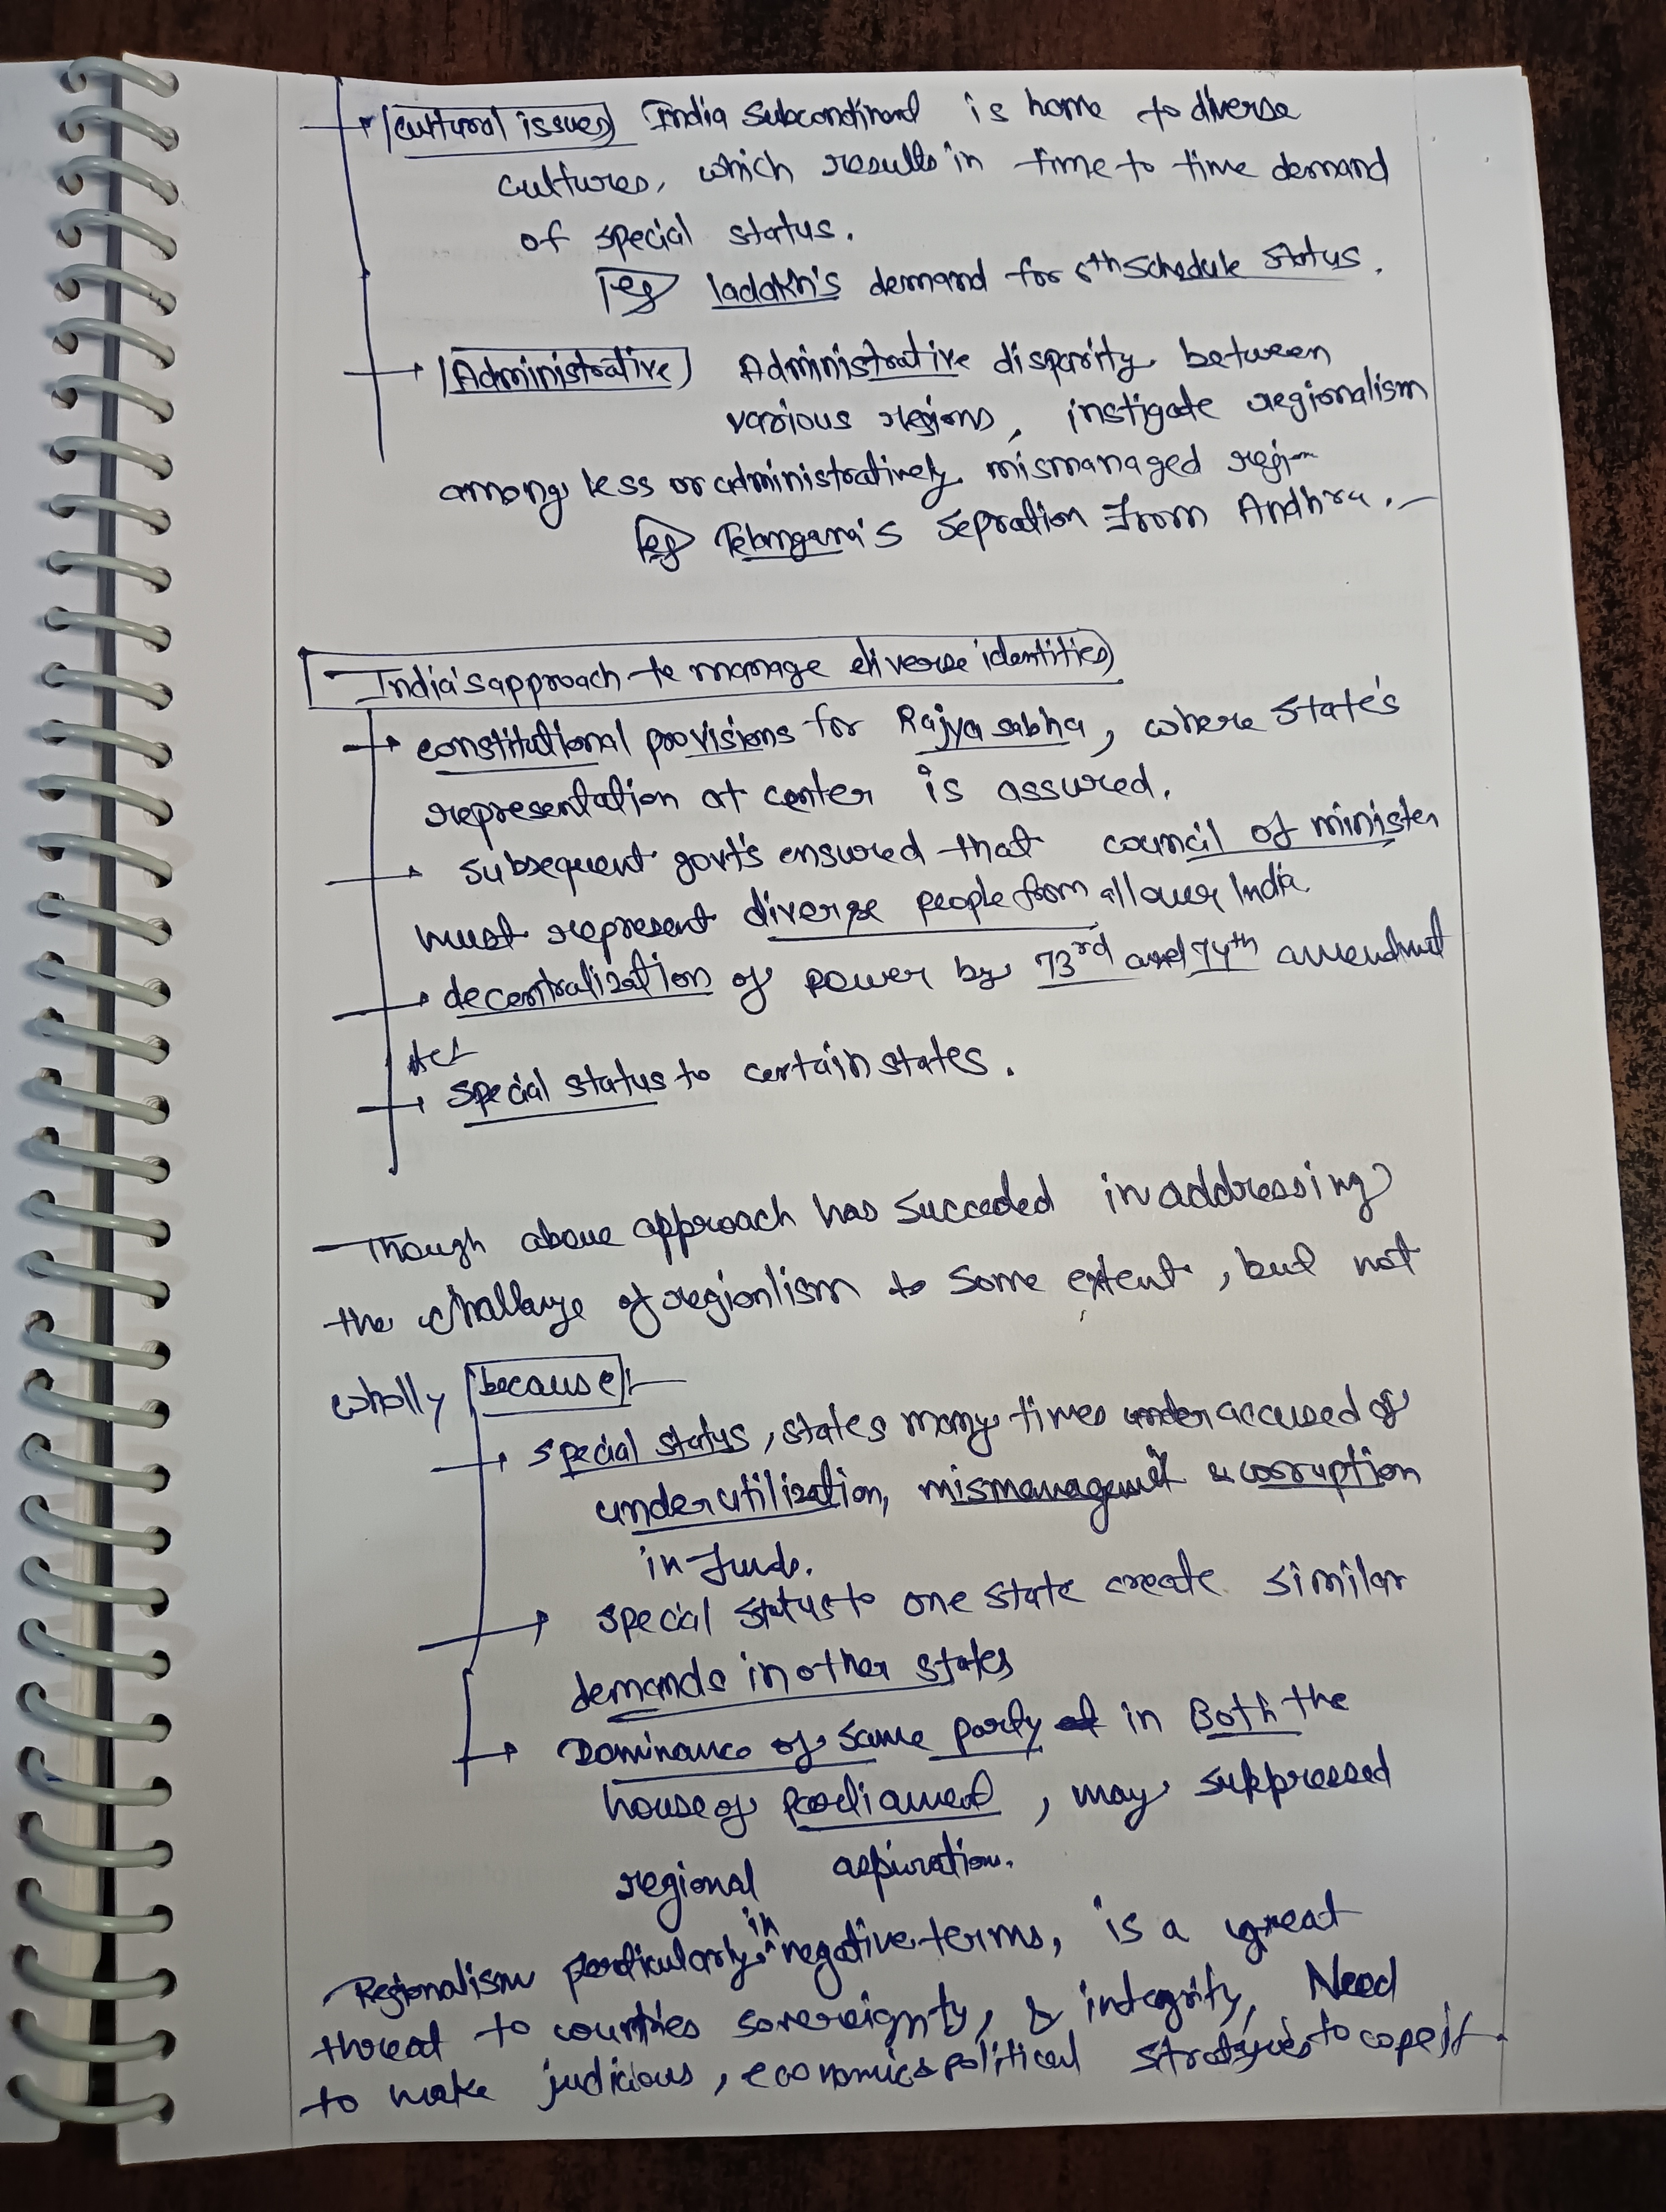 Cultural issues India Subcontinent is home to diverse
cultures, which results in time to time demand
of special status.
eg ladakh's demand for 6th Schedule status.
Administrative Administrative disparity between
various regions, instigate regionalism
among less or administratively mismanaged regi-
eg Telangana's sepration From Andhra.
India's approach to manage diverse identities
constitutional provisions for Rajya sabha, where state's
representation at center is assured.
subsequent govt's ensured that council of minister
must represent diverse people from all over India.
decentralization of power by 73rd and 74th amendment
Act
special status to certain states.
Though above approach has succeded in addressing
the challenge of regionlism to some extent, but not
wholly because:-
special status, states many times under accused of
underutilization, mismanagement & corruption
in funds.
special status to one state create similar
demands in other states
Dominance of same party in Both the
house of parliament, may suppressed
regional aspiration.
Regionalism particularly in negative terms, is a great
threat to countries sovereignty, & integrity, Need
to make judicious, economic & political strategies to cope it.